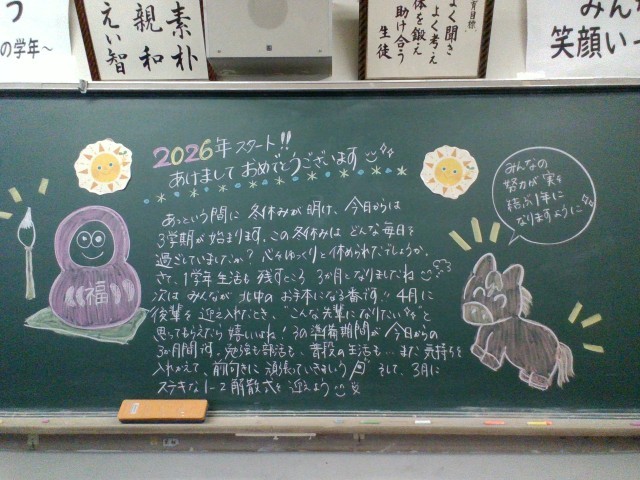 う
の学年〜
素朴
親和
えい智
よく聞き
よく考え
体を鍛え
助け合う
生徒
みん
笑顔いっ
2026年 スタート!!
あけまして おめでとうございます
あっという間に 冬休みが明け、今日からは
3学期が始まります。この冬休みは どんな毎日を
過ごしていましたか？ 心もゆっくりと休められたでしょうか。
さて、1学年生活も 残すところ 3か月となりましたね
次は みんなが 北中の お手本になる番です!! 4月に
後輩を 迎え入れたとき、"こんな先輩になりたいな"と
思ってもらえたら 嬉しいよね! その準備期間が 今日からの
3か月間です。勉強も部活も、普段の生活も… また 気持ちを
入れかえて、前向きに 頑張っていきましょう そして、3月に
ステキな1-2解散式を 迎えよう
みんなの
努力が 実を
結ぶ1年に
なりますように
福